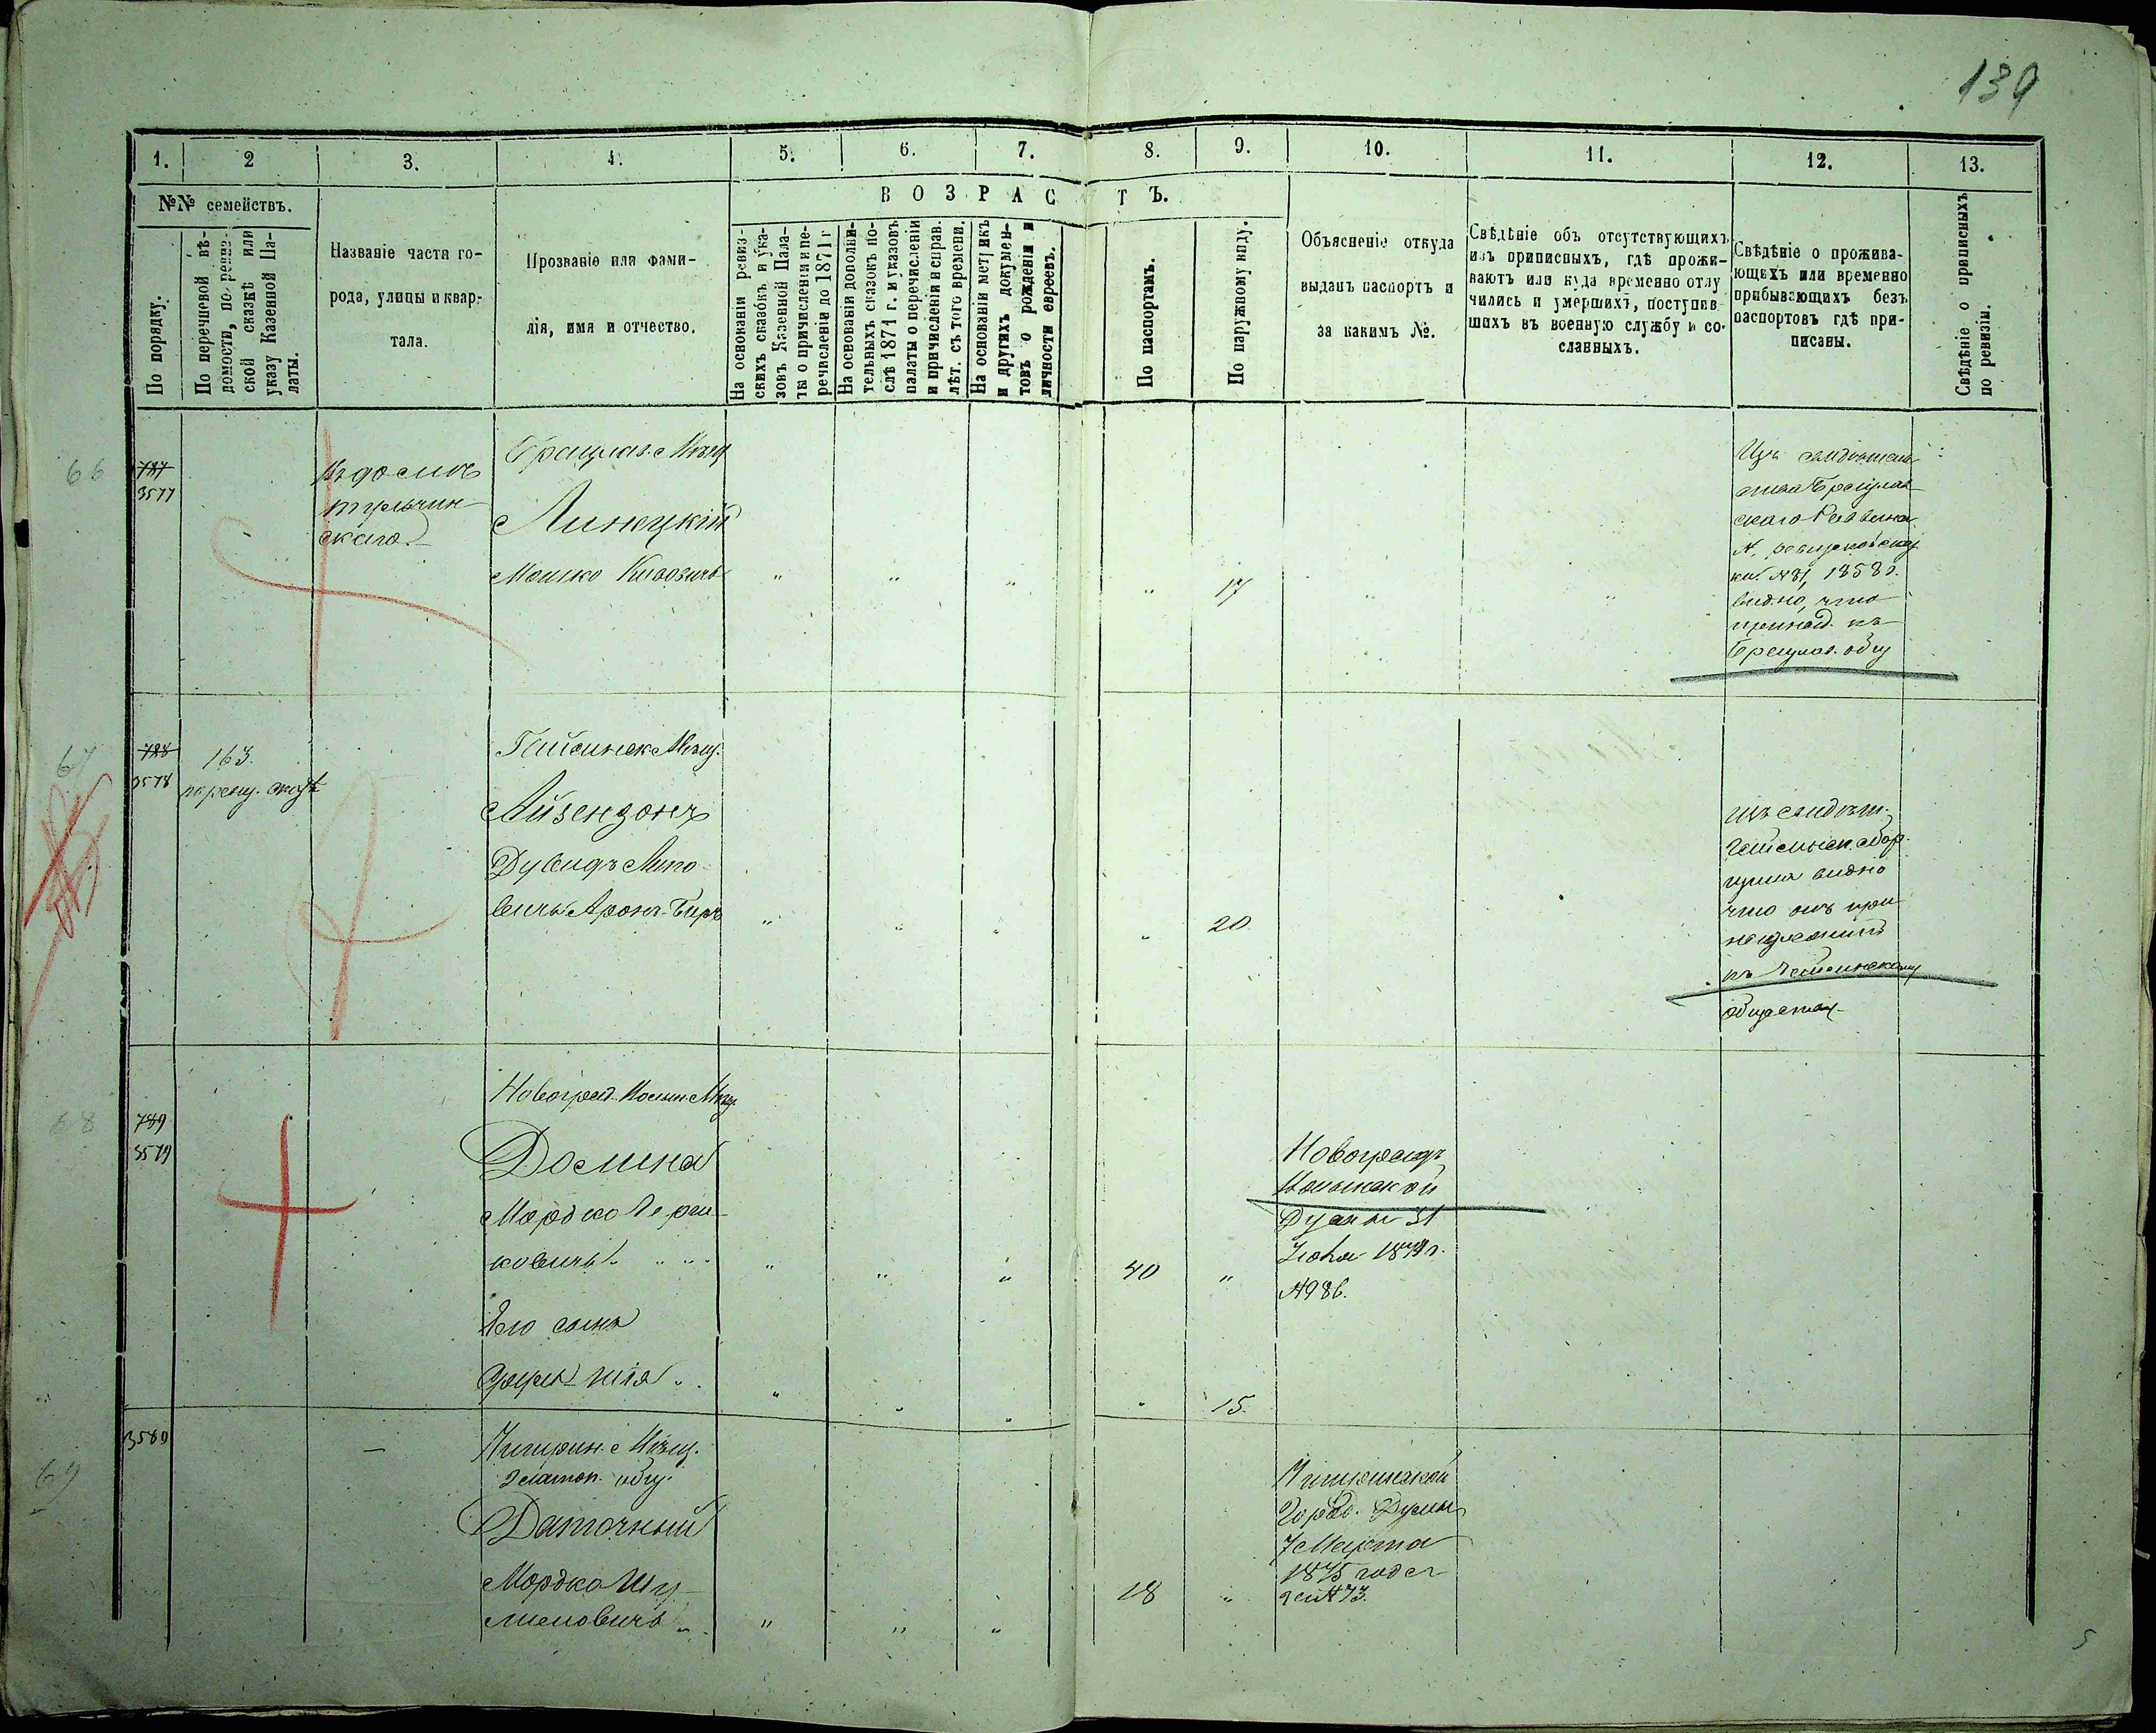 139
1. 2 3. 4. 5. 6. 7. 8. 9. 10. 11. 12. 13.
№№ семействъ.
ВОЗРАСТЪ.
По порядку.
По перечневой вѣ-
домости, по ревиз-
ской сказкѣ или
указу Казенной Па-
латы.
Названіе части го-
рода, улицы и квар-
тала.
Прозваніе или фами-
лія, имя и отчество.
На основаніи ревиз-
скихъ сказокъ и ука-
зовъ Казенной Пала-
ты о причисленіи и пе-
речисленіи до 1871 г.
На основаніи дополни-
тельныхъ сказокъ по-
слѣ 1871 г. и указовъ
палаты о перечисленіи
и причисленіи и справ.
лѣт. съ того времени.
На основаніи метрикъ
и другихъ докумен-
товъ о рожденіи и
личности евреевъ.
По паспортамъ.
По наружному виду.
Объясненіе откуда
выданъ паспортъ и
за какимъ №.
Свѣдѣніе объ отсутствующихъ
изъ приписныхъ, гдѣ прожи-
ваютъ или куда временно отлу
чились и умершихъ, поступив-
шихъ въ военную службу и со-
сланныхъ.
Свѣдѣніе о прожива-
ющихъ или временно
прибывающихъ безъ
паспортовъ гдѣ при-
писаны.
Свѣдѣніе о приписныхъ
по ревизіи.
66
787
3577
Въ домѣ
тульчин-
скаго.
Брацлав. Мѣщ
Линецкій
Мошко
" " " " 17 " "
Изъ
Брацлав-
скаго Раввина
1858 г.
видно, что
принад. къ
Брацлав. общ
67
788
3578
163.
Гайсинск Мѣщ.
Айзензонъ
Дувидъ
вичъ Аронъ-Беръ
" " " " 20.
изъ
Гайсинск.
видно
что онъ при-
надлежитъ
къ Гайсинскому
обществу
68
789
3579
Новоград-Волын Мѣщ
Долина
Мордко Герш-
ковичъ
" " " 40 "
Новоградъ
Волынской
Думы 31
№986.
Его сынъ
Шія
" " " " 15.
69
3580
—
Чигирин. Мѣщ.
Златоп. общ.
Даточный
Мордко Шу-
лимовичъ
" " " 18 "
Чигиринской
Город. Думы
7 Марта
1875 года
за №73.
5